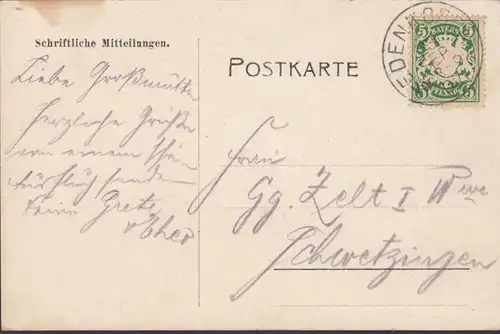 Schriftliche Mitteilungen.
POSTKARTE
5 BAYERN 5
5 PFENNIG 5
EDENKOB
Liebe Großmutter
herzliche Grüße
von einem schönen
Ausflug senden
Grete
Theo
Frau
Gg. Zelt I Wwe
Schwetzingen